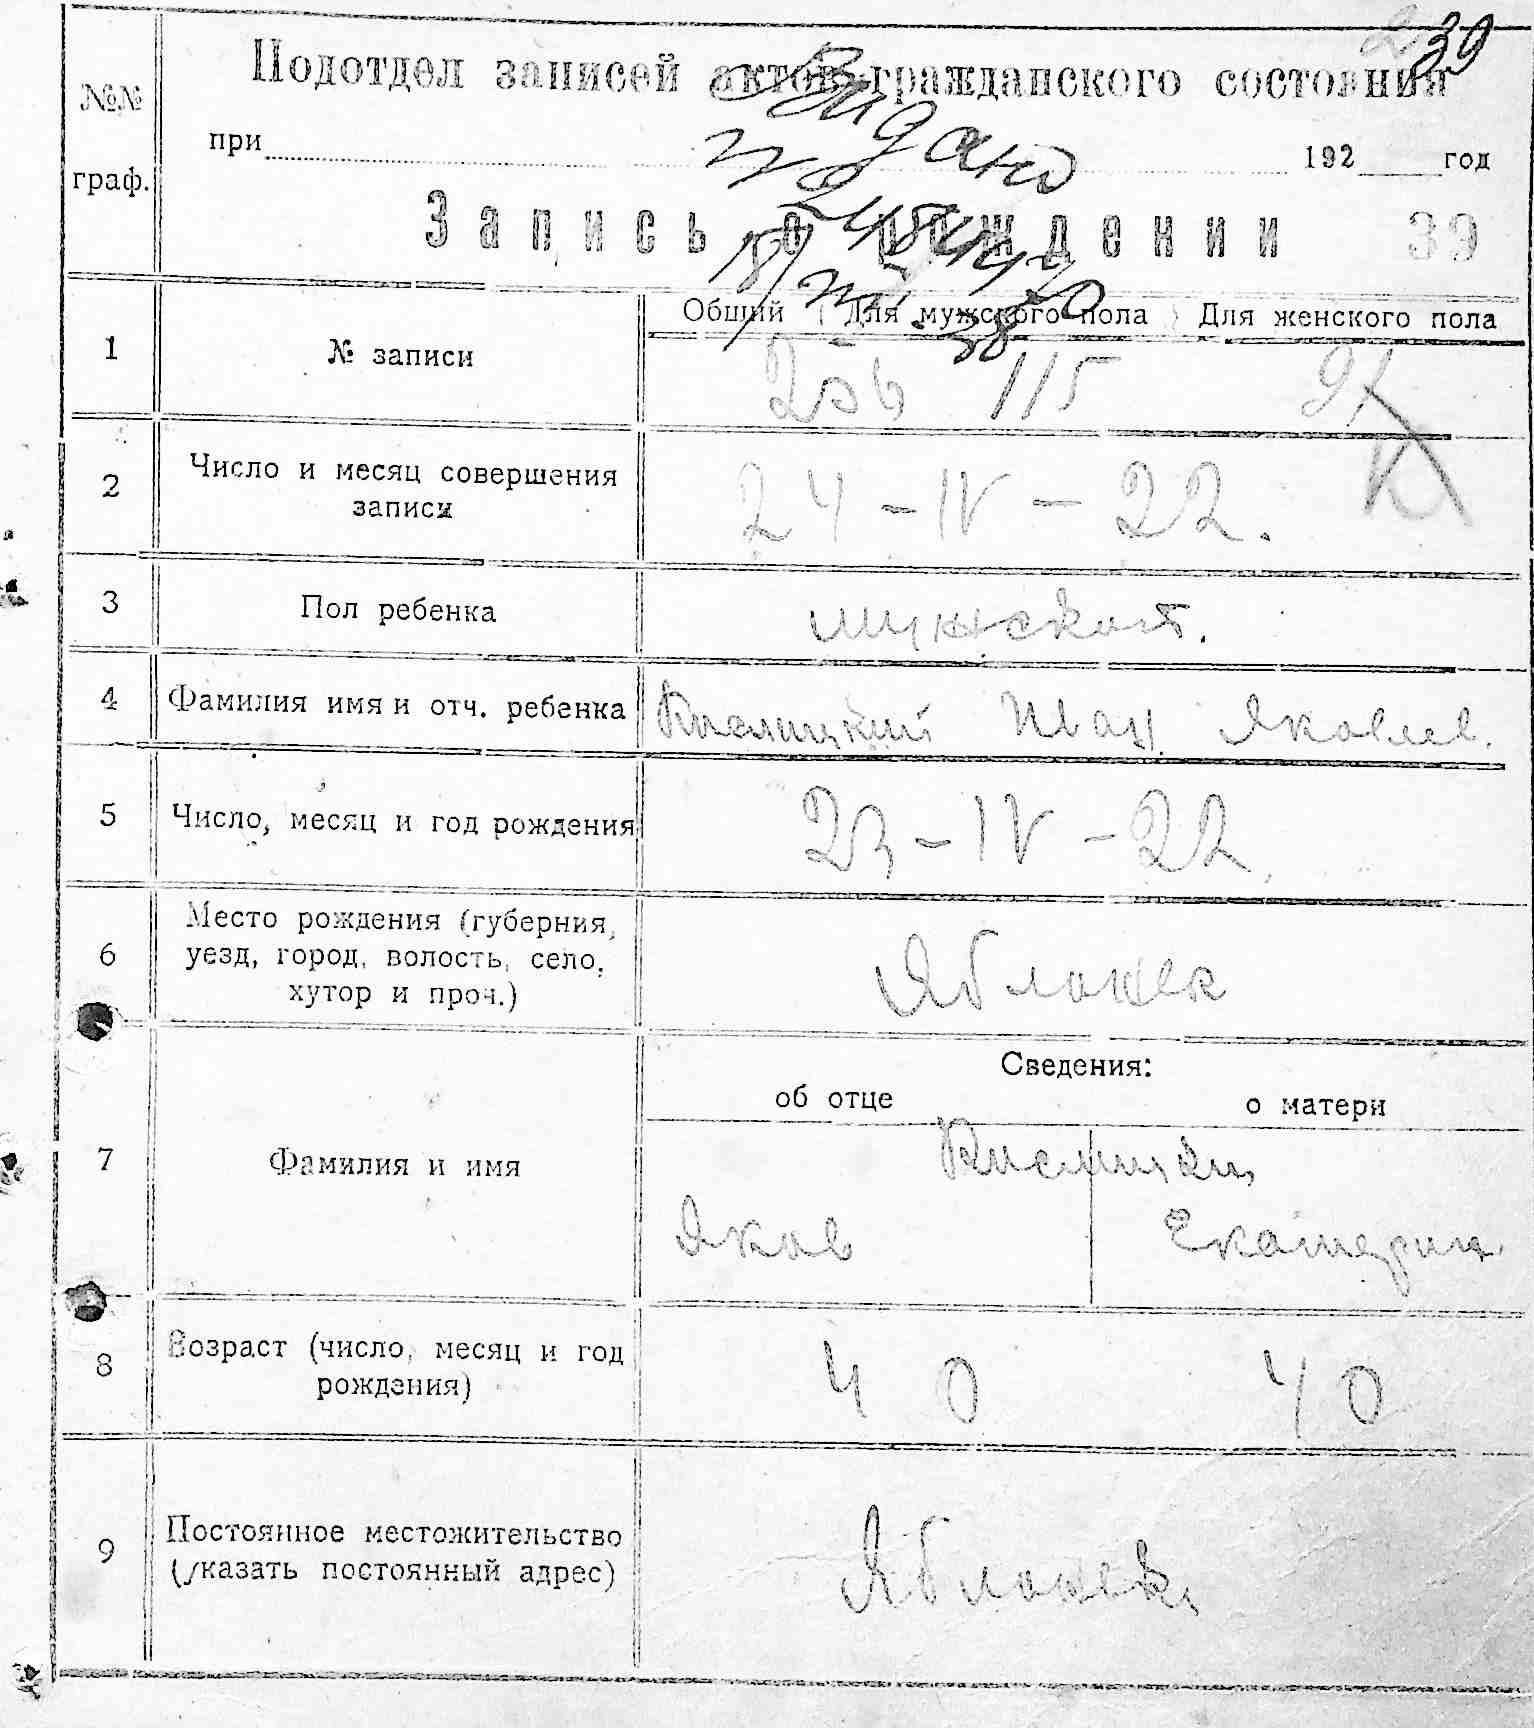 39
Подотдел записей актов гражданского состояния
№№ граф.
при 192 год
Видано
Запись о рождении 39
Общий Для мужского пола Для женского пола
1 № записи 206 115 91
2 Число и месяц совершения
записи
24-IV-22.
3 Пол ребенка мужской.
4 Фамилия имя и отч. ребенка Кислицкий Иван Яковлев.
5 Число, месяц и год рождения 23-IV-22
6 Место рождения (губерния,
уезд, город, волость, село,
хутор и проч.)
Яблонек
Сведения:
об отце о матери
7 Фамилия и имя
Яков Екатерин
8 Возраст (число, месяц и год
рождения)
40 40
9 Постоянное местожительство
(указать постоянный адрес)
Яблонек